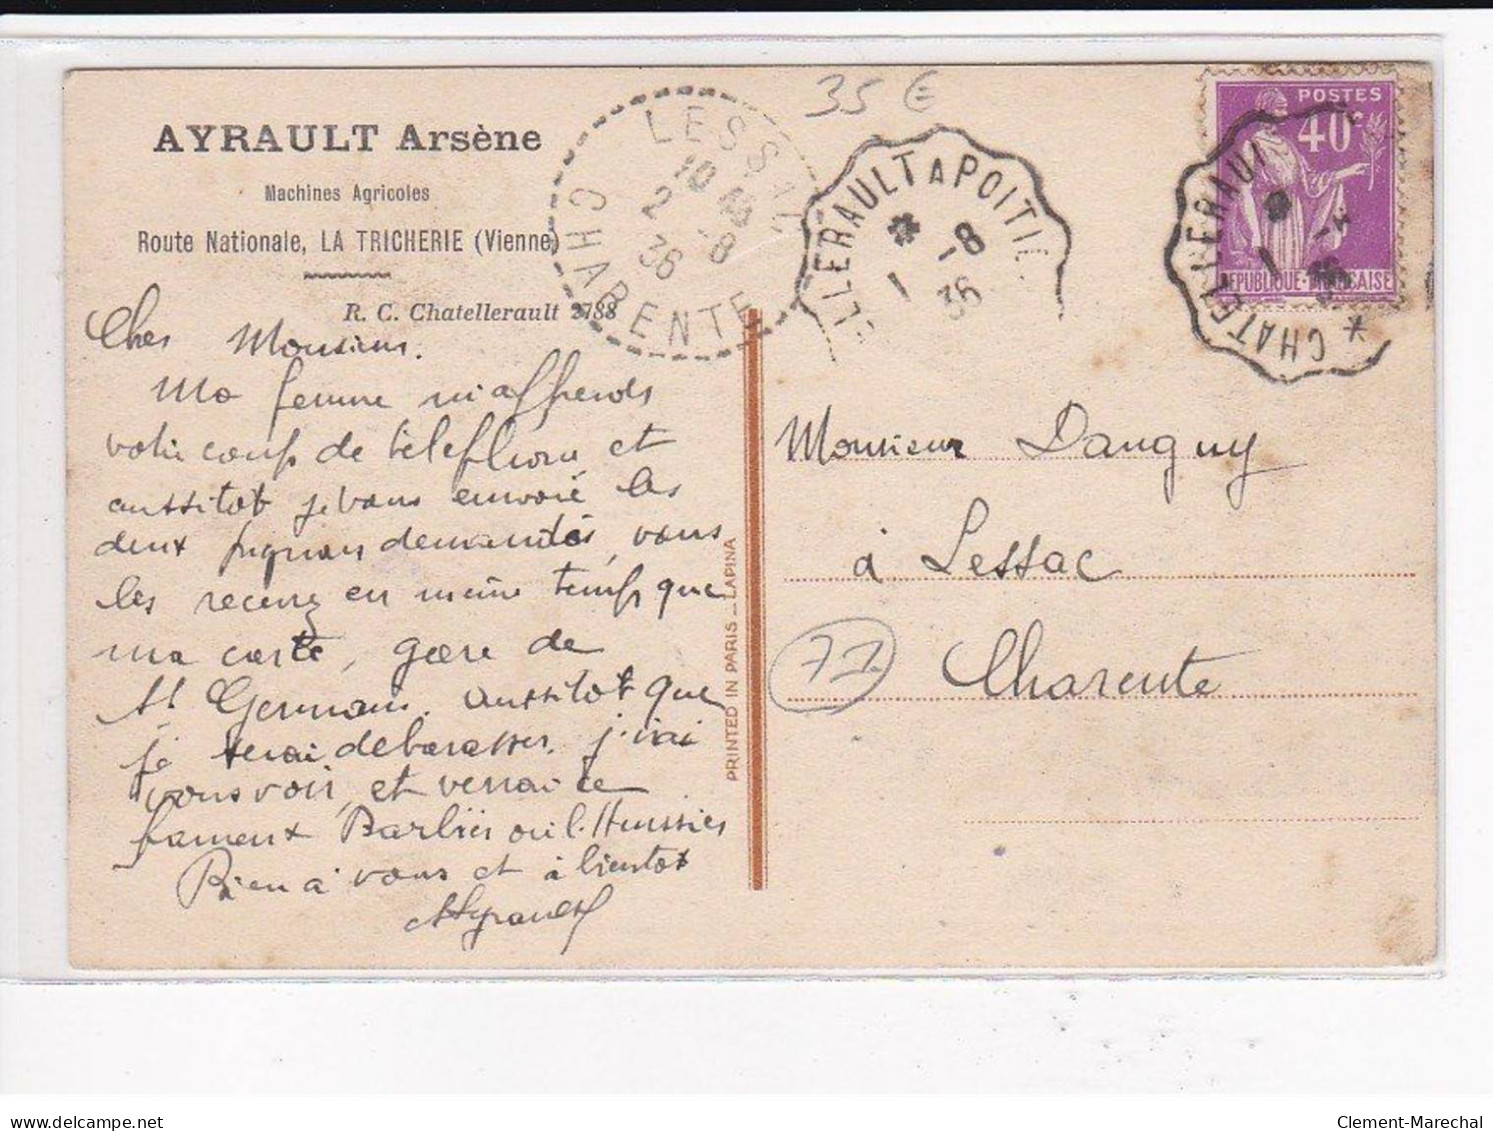 AYRAULT Arsène
Machines Agricoles
Route Nationale, LA TRICHERIE (Vienne)
R. C. Chatellerault 2788
Cher Monsieur.
Ma femme m'apprends
votre coup de telephone et
aussitot je vous envoie les
deux pignons demandés, vous
les recevrez en meme temps que
ma carte, gare de
St Germain. aussitot que
je serai debarasser. j'irai
vous voir, et verrai
Barbier ou l.
Bien a vous et à bientot
Ayrault
LESSAC
10 45
2 -8
36
CHARENTE
35 €
ELLERAULT A POITIE
1 -8
36
POSTES
40c
REPUBLIQUE FRANÇAISE
* CHATELLERAUL
1 -8
36
Monsieur Dauguy
à Lessac
Charente
71
PRINTED IN PARIS - LAPINA
delcampe.net
Clement-Marechal